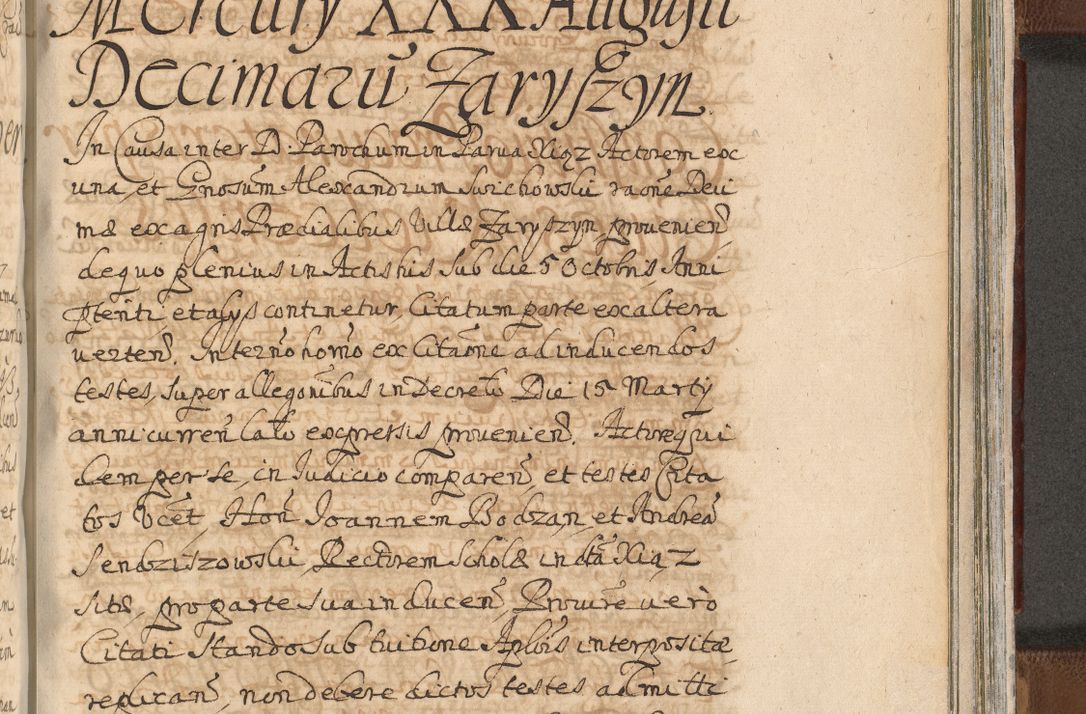 Mercury XXX Augusti
Decimarũ Zaryszyn.
In Causa inter D: Parochum in Parva Xiąz Actorem ex
una, et Gnosum Alexandrum Swichowski raone Deci
mæ ex agris Prædialibus Villæ Zaryszyn provenien
de quo plenius in Actis his sub die 5 Octobris Anni
pñti et alijs continetur, Citatum parte ex altera
verten. In termo homo ex Citaõne ad inducendos
testes, super allegonibus in Decreto Die 15 Martij
anni curren lato expressis provenien. Actore qui
dem per se, in Judicio comparen et testes Cita
tos Vcet, Hon Joannem Bodzan, et Andrea
Sendziszowski, Rectorem Scholæ in dta Xiąz
sitæ, pro parte sua inducen, Procure vero
Citati stando sub tuitione Aplois interpositæ
replican, non debere dictos testes admitti